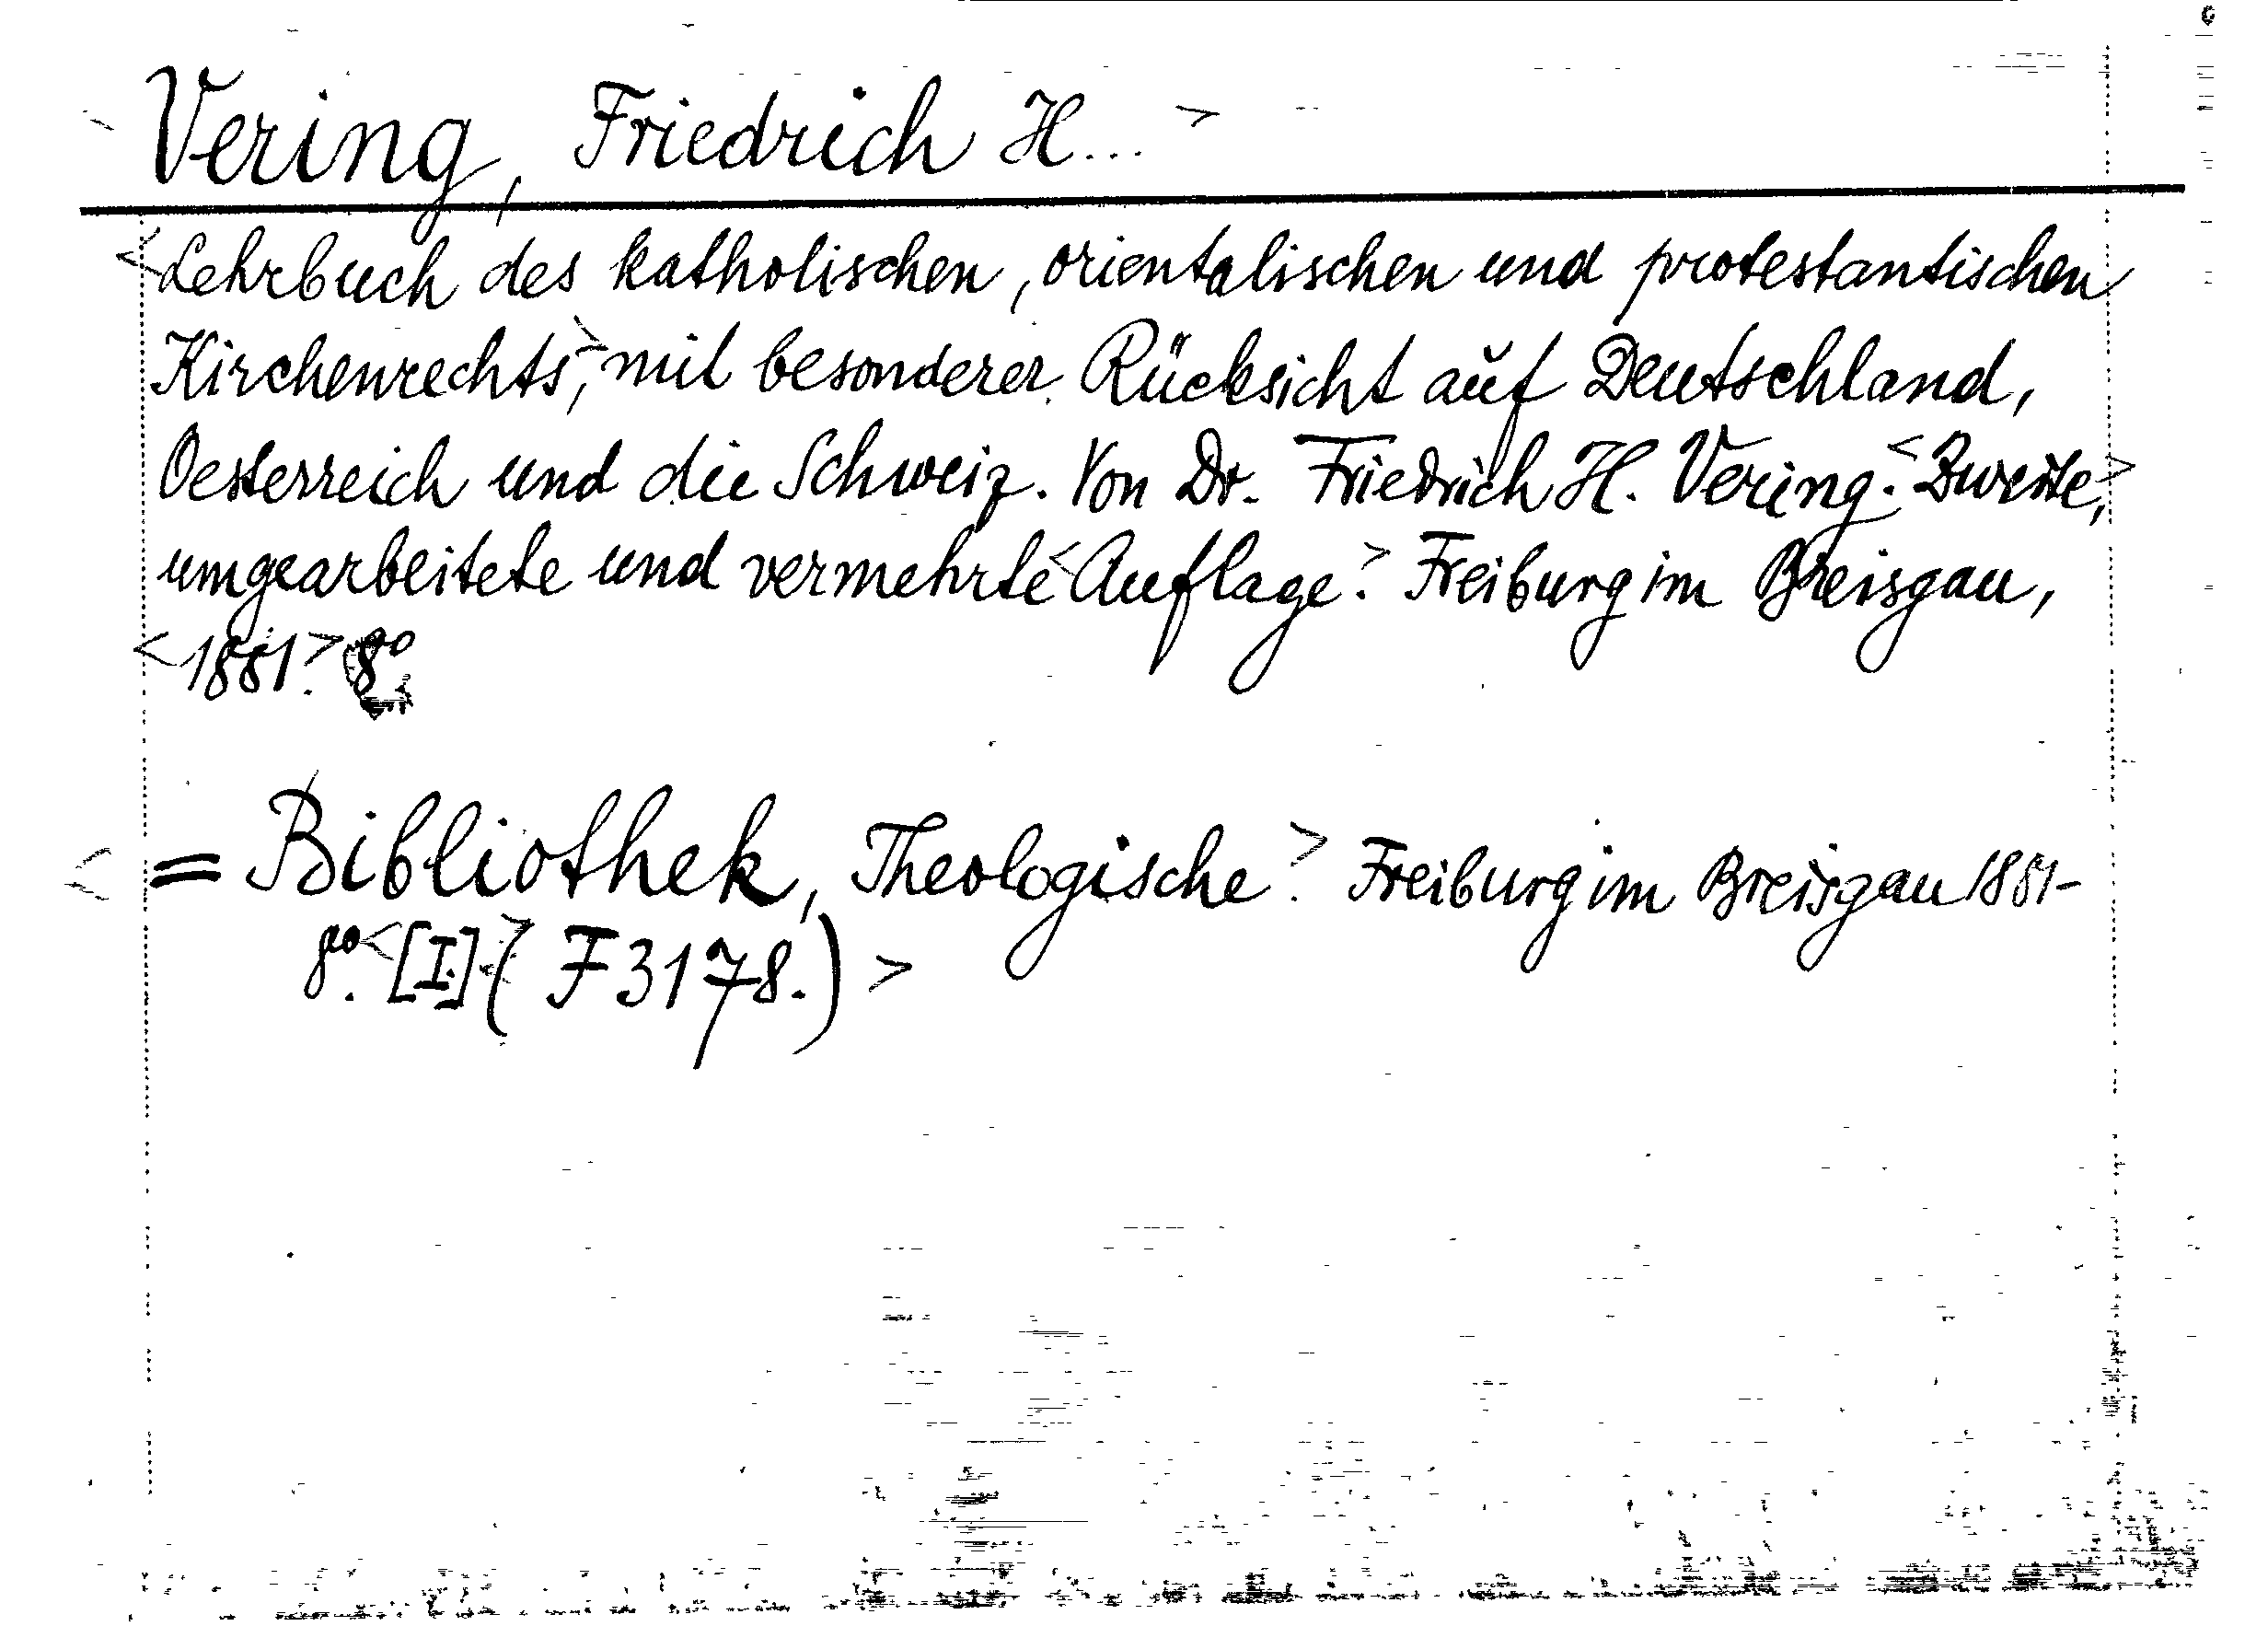 Vering, Friedrich H... >
<Lehrbuch des katholischen, orientalischen und protestantischen
Kirchenrechts,> mit besonderer Rücksicht auf Deutschland,
Oesterreich und die Schweiz. Von Dr. Friedrich H. Vering. <Zweite,>
umgearbeitete und vermehrte <Auflage.> Freiburg im Breisgau,
<1881.> 8º.
< = Bibliothek, Theologische.> Freiburg im Breisgau 1881-
8º. <[I.]> (F 3178.) >